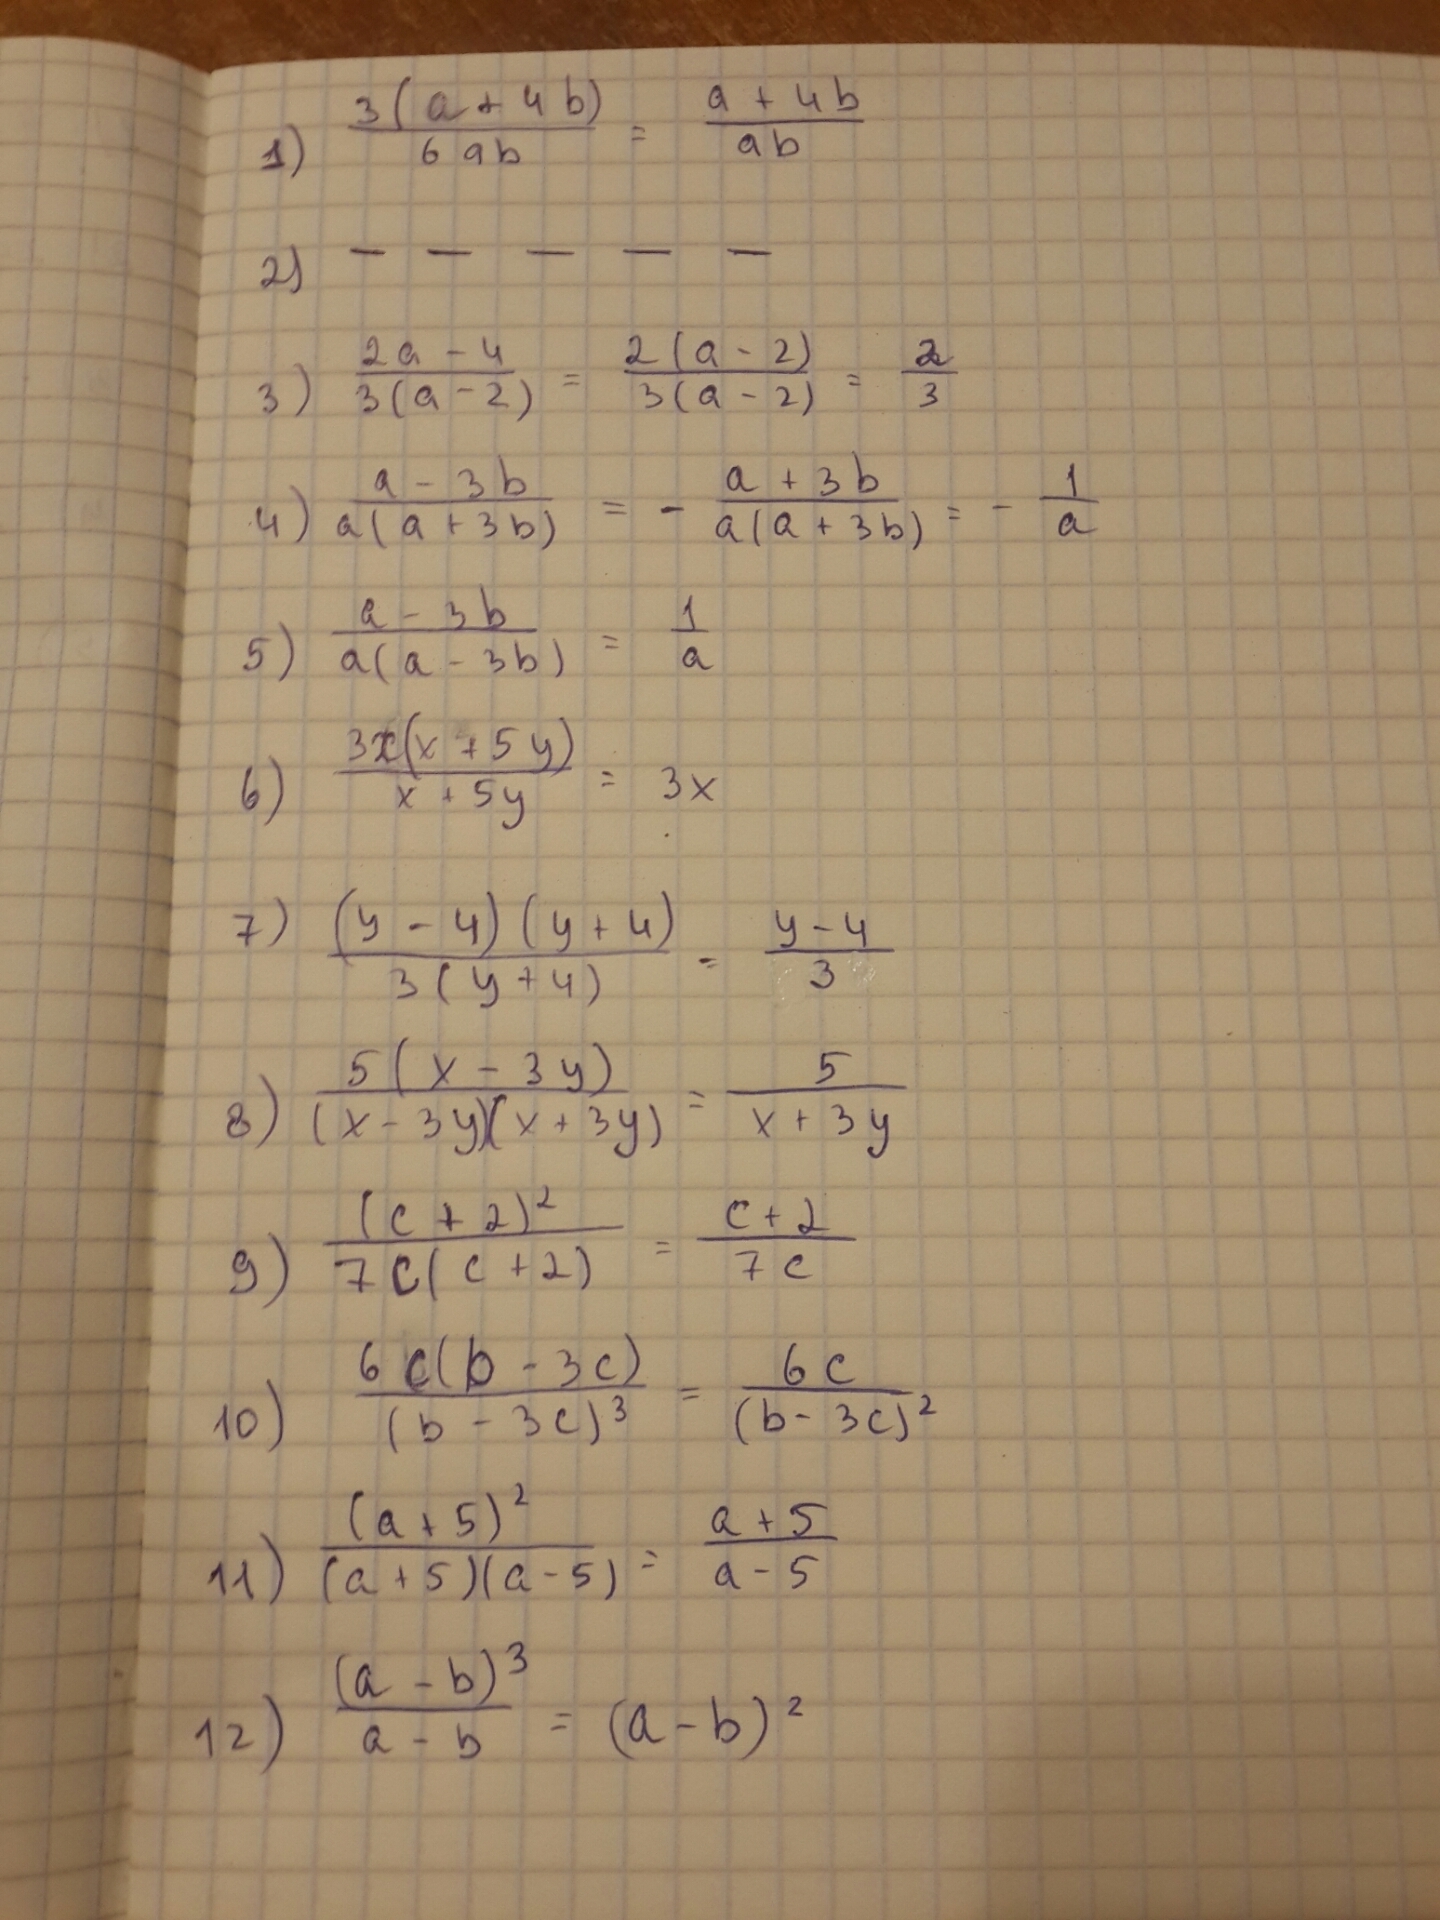 1) 3(a + 4b) / 6ab = a + 4b / ab
2) — — — — —
3) 2a - 4 / 3(a - 2) = 2(a - 2) / 3(a - 2) = 2 / 3
4) a - 3b / a(a + 3b) = - a + 3b / a(a + 3b) = - 1 / a
5) a - 3b / a(a - 3b) = 1 / a
6) 3x(x + 5y) / x + 5y = 3x
7) (y - 4)(y + 4) / 3(y + 4) = y - 4 / 3
8) 5(x - 3y) / (x - 3y)(x + 3y) = 5 / x + 3y
9) (c + 2)² / 7c(c + 2) = c + 2 / 7c
10) 6c(b - 3c) / (b - 3c)³ = 6c / (b - 3c)²
11) (a + 5)² / (a + 5)(a - 5) = a + 5 / a - 5
12) (a - b)³ / a - b = (a - b)²